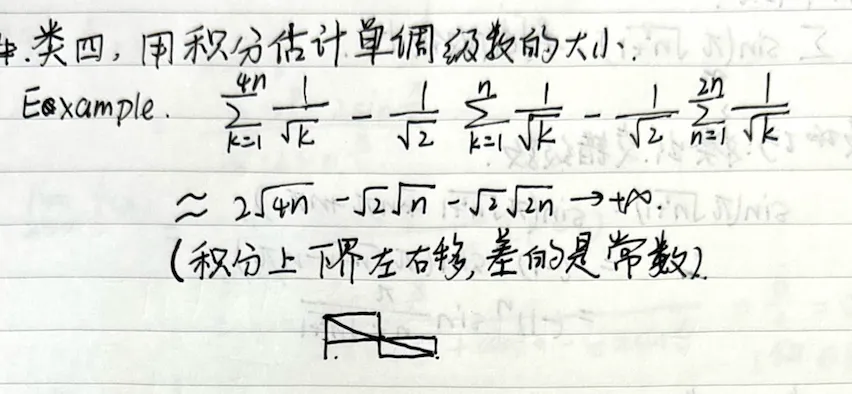 类四,用积分估计单调级数的大小:
Eexample. \sum_{k=1}^{4n} \frac{1}{\sqrt{k}} - \frac{1}{\sqrt{2}} \sum_{k=1}^{n} \frac{1}{\sqrt{k}} - \frac{1}{\sqrt{2}} \sum_{n=1}^{2n} \frac{1}{\sqrt{k}}
≈ 2\sqrt{4n} - \sqrt{2}\sqrt{n} - \sqrt{2}\sqrt{2n} → +∞.
(积分上下界左右移,差的是常数).